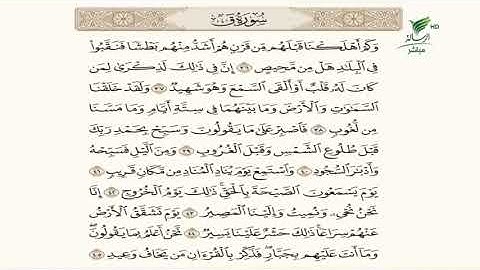 سُورَةُ ق
HD
الرسالة
مباشر
وَكَمْ أَهْلَكْنَا قَبْلَهُم مِّن قَرْنٍ هُمْ أَشَدُّ مِنْهُم بَطْشًا فَنَقَّبُوا۟
فِى ٱلْبِلَـٰدِ هَلْ مِن مَّحِيصٍ ٣٦ إِنَّ فِى ذَٰلِكَ لَذِكْرَىٰ لِمَن
كَانَ لَهُۥ قَلْبٌ أَوْ أَلْقَى ٱلسَّمْعَ وَهُوَ شَهِيدٌ ٣٧ وَلَقَدْ خَلَقْنَا
ٱلسَّمَـٰوَٰتِ وَٱلْأَرْضَ وَمَا بَيْنَهُمَا فِى سِتَّةِ أَيَّامٍ وَمَا مَسَّنَا
مِن لُّغُوبٍ ٣٨ فَٱصْبِرْ عَلَىٰ مَا يَقُولُونَ وَسَبِّحْ بِحَمْدِ رَبِّكَ
قَبْلَ طُلُوعِ ٱلشَّمْسِ وَقَبْلَ ٱلْغُرُوبِ ٣٩ وَمِنَ ٱلَّيْلِ فَسَبِّحْهُ
وَأَدْبَـٰرَ ٱلسُّجُودِ ٤٠ وَٱسْتَمِعْ يَوْمَ يُنَادِ ٱلْمُنَادِ مِن مَّكَانٍ قَرِيبٍ ٤١
يَوْمَ يَسْمَعُونَ ٱلصَّيْحَةَ بِٱلْحَقِّ ذَٰلِكَ يَوْمُ ٱلْخُرُوجِ ٤٢ إِنَّا
نَحْنُ نُحْىِۦ وَنُمِيتُ وَإِلَيْنَا ٱلْمَصِيرُ ٤٣ يَوْمَ تَشَقَّقُ ٱلْأَرْضُ
عَنْهُمْ سِرَاعًا ذَٰلِكَ حَشْرٌ عَلَيْنَا يَسِيرٌ ٤٤ نَّحْنُ أَعْلَمُ بِمَا يَقُولُونَ
وَمَآ أَنتَ عَلَيْهِم بِجَبَّارٍ فَذَكِّرْ بِٱلْقُرْءَانِ مَن يَخَافُ وَعِيدِ ٤٥